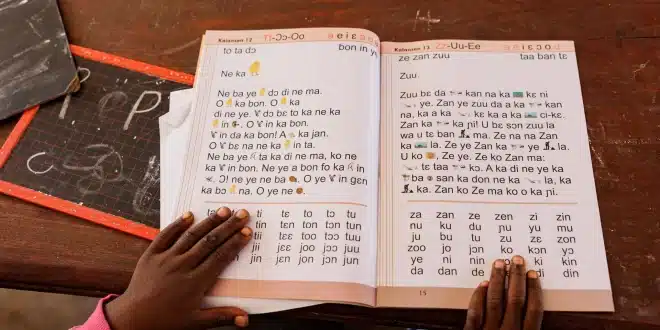 Kalansen 12 Tt-Ɔɔ-Oo
to ta dɔ
bon in
Ne ka
Ne ba ye dɔ di ne ma.
O ka bon. O ka
di ne ye. dɔ bɛ to ka ne ka
in. O in ka bon.
in da ka bon! A ka jan.
O bɛ na ne ka in ta.
Ne ba ye ta ka di ne ma, ko ne
ka in bon. Ne ye a bon fo ka in
Ɔ! ne ye ne ba. O ye in gɛn
ka bɔ na. O ye ne
ti tɛ to tɔ tu
tin tɛn ton tɔn tun
tii tɛɛ too tɔɔ tuu
jii jɛɛ joo jɔɔ juu
jin jɛn jon jɔn jun
Kalansen 13 Zz-Uu-Ee
ze zan zuu
taa ban tɛ
Zuu.
Zuu bɛ da kan na ka kɛ ni
ye. Zan ye zuu da a ka kan
na, ka a ka kɛ a ka ci-kɛ.
Zan ka ka ɲi! U bɛ sɔn zuu la
wa u tɛ ban ma. Ze na na Zan
ka la. Ze ye Zan ka ye la.
U ko, Ze ye. Ze ko Zan ma:
i ka tɛ taa kɔ. A ka di ne ye ka
ba san ka don ne ka la, ka
ka. Zan ko Ze ma ko o ka ɲi.
za zan ze zen zi zin
nu ku du ɲu yu mu
ju bu tu zu zɛ zon
zoo jo jɔn ko kɔn yɔ
ye ni nin ki kin
da dan de di din
15